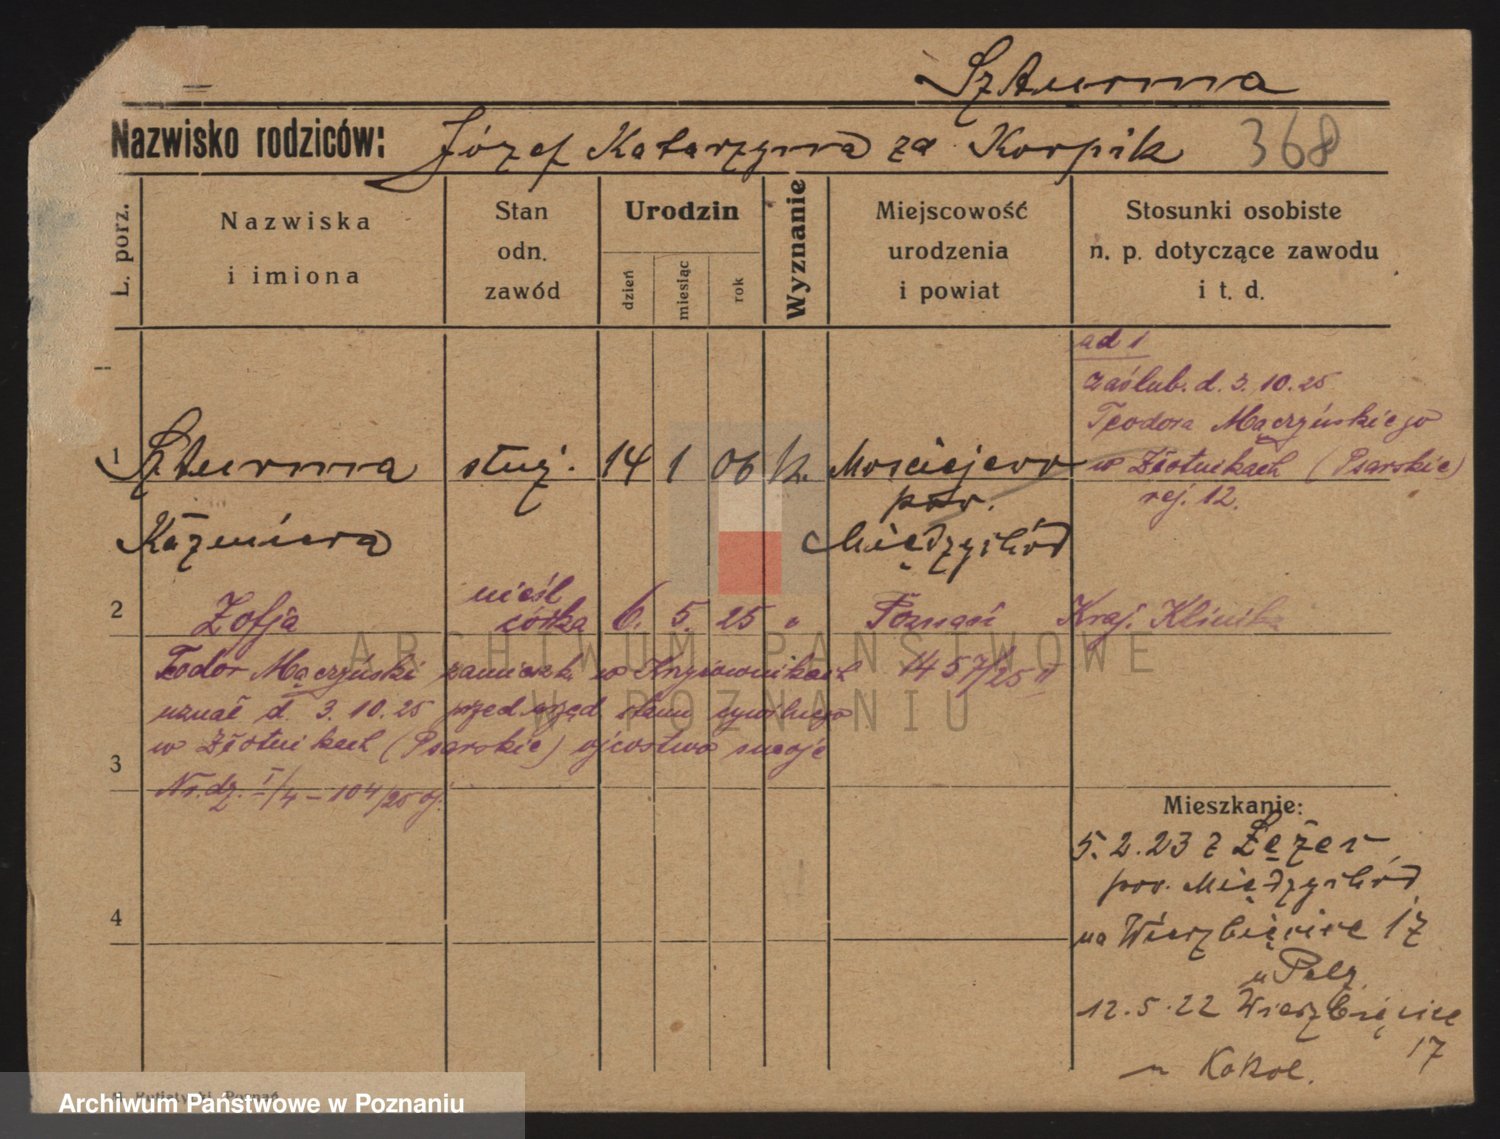 Szturma
Nazwisko rodziców: Józef Katarzyna za Korpik 368
L. porz.
Nazwiska
i imiona
Stan
odn.
zawód
Urodzin
dzień
miesiąc
rok
Wyznanie
Miejscowość
urodzenia
i powiat
Stosunki osobiste
n. p. dotyczące zawodu
i t. d.
ad 1
zaślub. d. 3. 10. 25
Teodora Mączyńskiego
w Złotnikach (Psarskie)
rej. 12.
1 Szturma służ. 14 1 06 k. Mosciejewo
pow.
Kazmiera Międzychód
2 Zofja nieśl córka 6. 5. 25 " Poznań Kraj. Klinika
Teodor Mączyński zamieszk. w Krzyżownikach 1457/25 II
uznał d. 3. 10. 25 przed urzęd. stanu cywilnego
3 w Złotnikach (Psarskie) ojcostwo swoje
Nr. dz. I/4 – 104/25 oj.
Mieszkanie:
5. 2. 23 z Łężec
pow. Międzychód
na Wierzbięcice 17
u Pelz
12. 5. 22 Wierzbięcice
17
u Kokoc.
4
ARCHIWUM PAŃSTWOWE
W POZNANIU
Archiwum Państwowe w Poznaniu